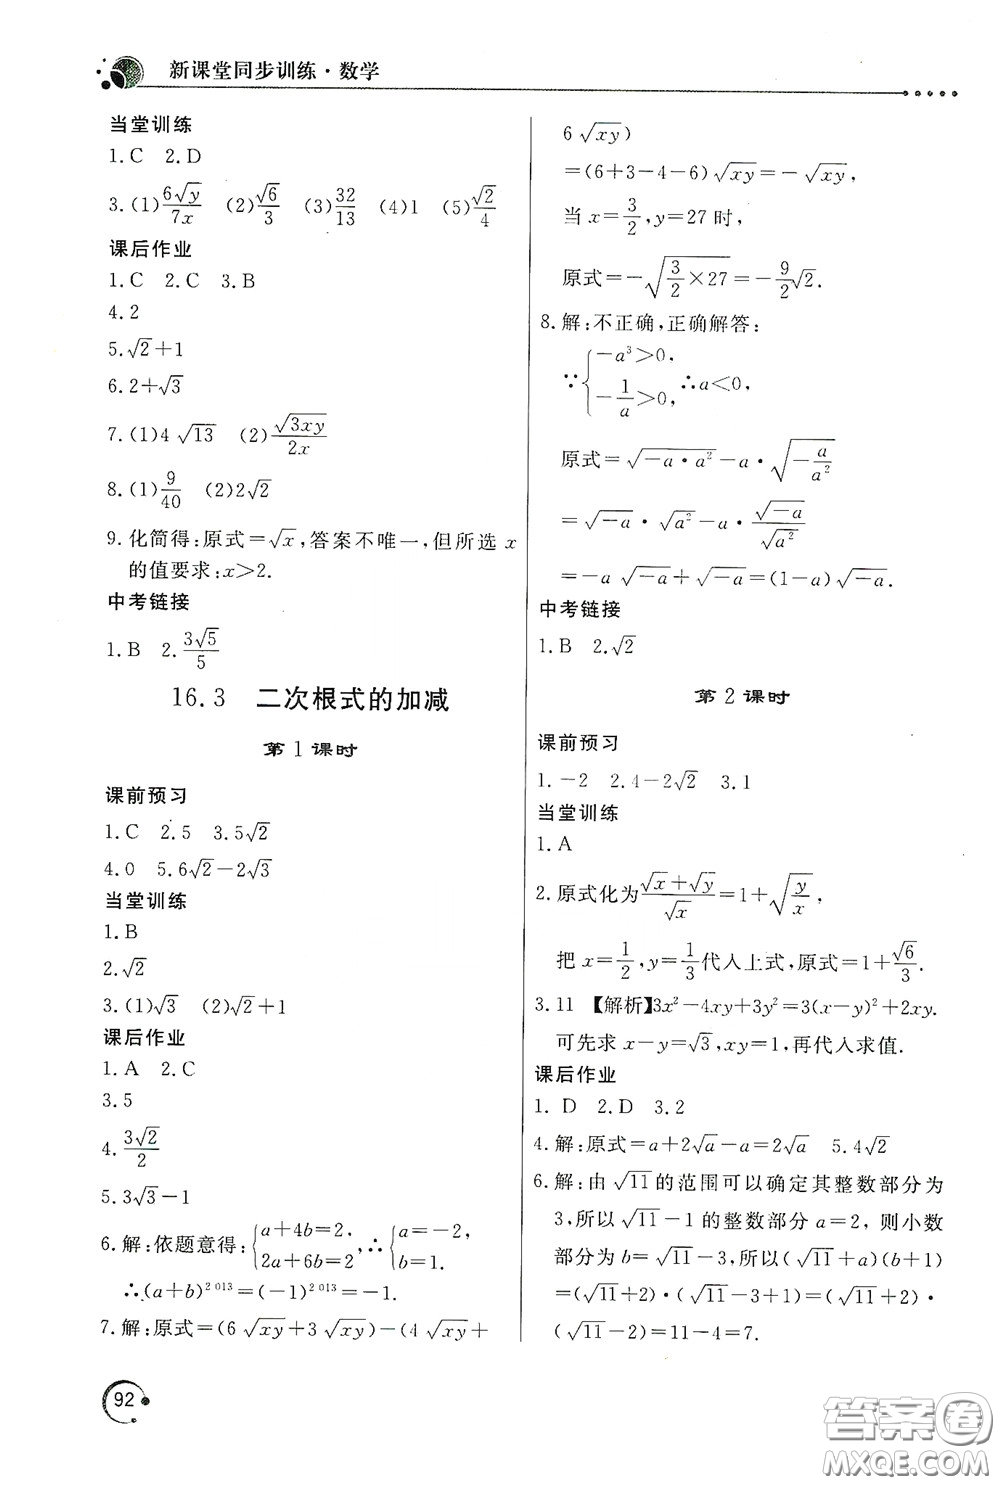 新课堂同步训练·数学
当堂训练
1.C 2.D
3.(1)6√y/7x (2)√6/3 (3)32/13 (4)1 (5)√2/4
课后作业
1.C 2.C 3.B
4.2
5.√2+1
6.2+√3
7.(1)4√13 (2)√3xy/2x
8.(1)9/40 (2)2√2
9.化简得:原式=√x,答案不唯一,但所选 x
的值要求:x>2.
中考链接
1.B 2.3√5/5
16.3 二次根式的加减
第1课时
课前预习
1.C 2.5 3.5√2
4.0 5.6√2-2√3
当堂训练
1.B
2.√2
3.(1)√3 (2)√2+1
课后作业
1.A 2.C
3.5
4.3√2/2
5.3√3-1
6.解:依题意得:{a+4b=2, 2a+6b=2 ,∴{a=-2, b=1.
∴(a+b)²⁰¹³=(-1)²⁰¹³=-1.
7.解:原式=(6√xy+3√xy)-(4√xy+
6√xy)
=(6+3-4-6)√xy=-√xy,
当 x=3/2,y=27 时,
原式=-√(3/2×27)=-9/2√2.
8.解:不正确,正确解答:
∵{-a³>0, -1/a>0, ∴a<0,
原式=√(-a·a²)-a·√(-a/a²)
=√-a·√a²-a·√-a/√a²
=-a√-a+√-a=(1-a)√-a.
中考链接
1.B 2.√2
第2课时
课前预习
1.-2 2.4-2√2 3.1
当堂训练
1.A
2.原式化为(√x+√y)/√x=1+√(y/x),
把 x=1/2,y=1/3代入上式,原式=1+√6/3.
3.11 【解析】3x²-4xy+3y²=3(x-y)²+2xy.
可先求 x-y=√3,xy=1,再代入求值.
课后作业
1.D 2.D 3.2
4.解:原式=a+2√a-a=2√a 5.4√2
6.解:由√11的范围可以确定其整数部分为
3,所以√11-1的整数部分 a=2,则小数
部分为 b=√11-3,所以(√11+a)(b+1)
=(√11+2)·(√11-3+1)=(√11+2)·
(√11-2)=11-4=7.
92
答案卷
MXQE.COM